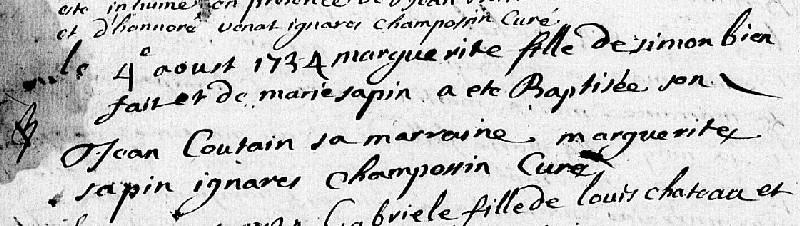 esté inhumé en presence de Jean
et d'honnoré venat ignares champossin Curé
le 4e aoust 1734 marguerite fille de simon bien
fait et de marie sapin a ete Baptisée son
Jean Coutain sa marraine marguerite
sapin ignares champossin Curé
Gabriele fille de louis chateau et